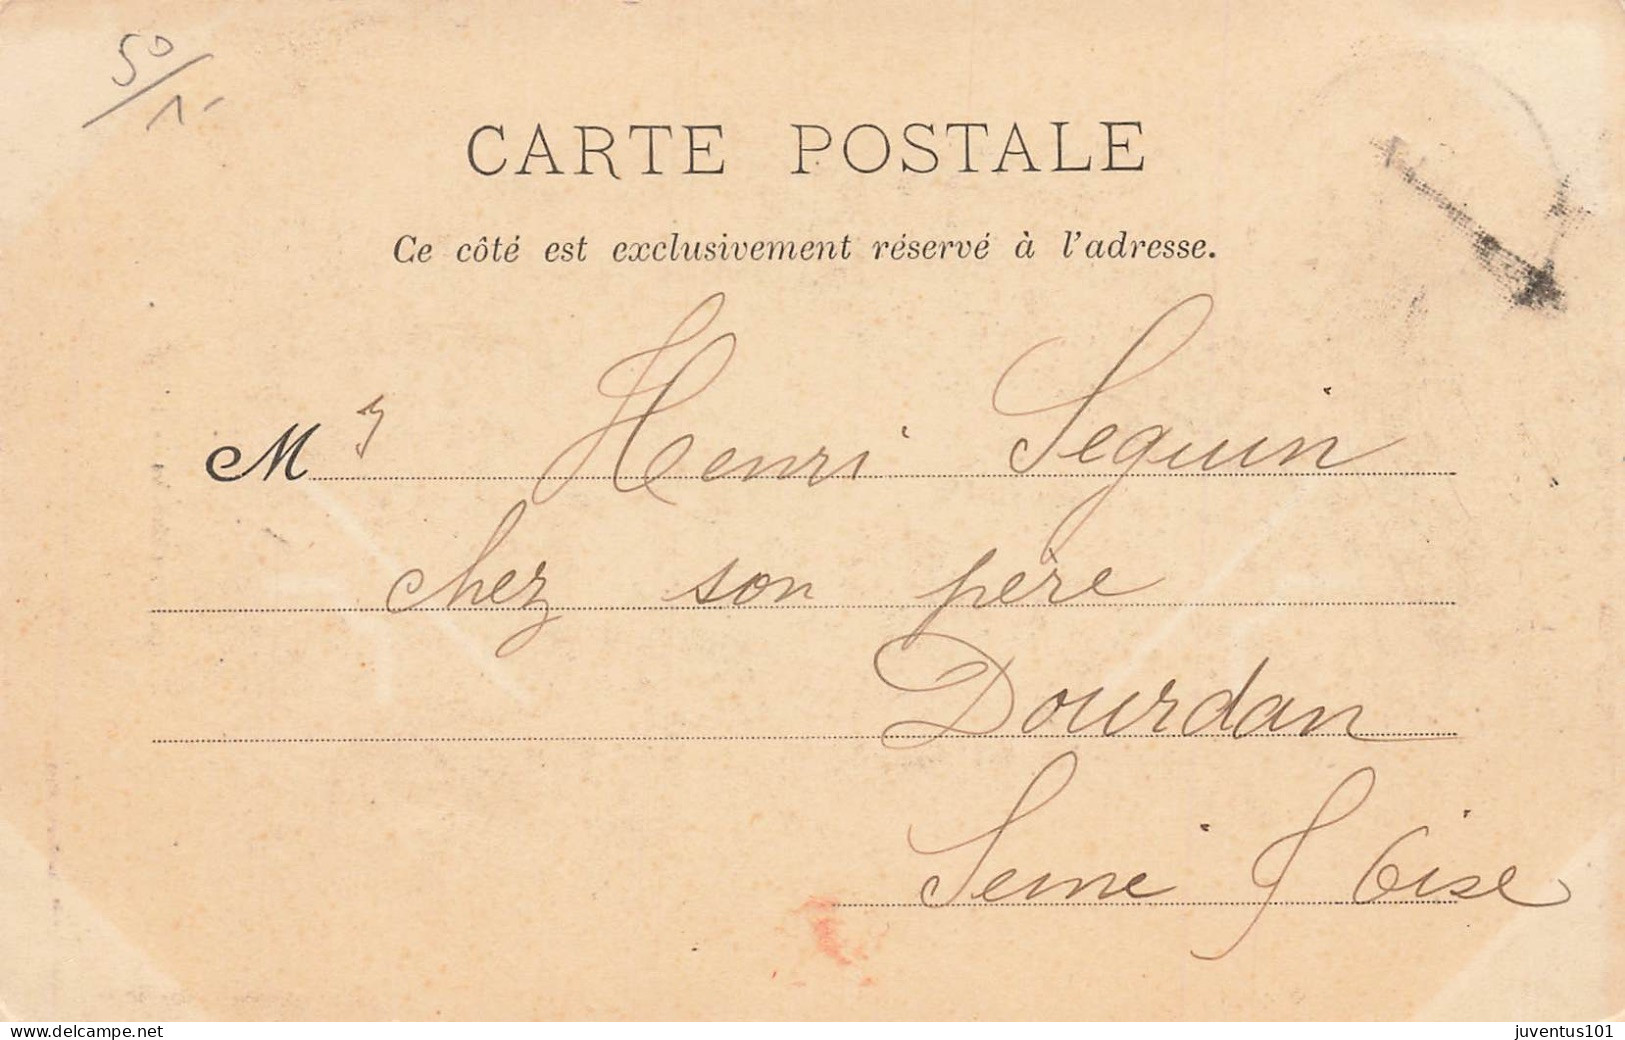 50/1-
CARTE POSTALE
Ce côté est exclusivement réservé à l'adresse.
Mr Henri Seguin
chez son père
Dourdan
Seine & Oise
www.delcampe.net
juventus101